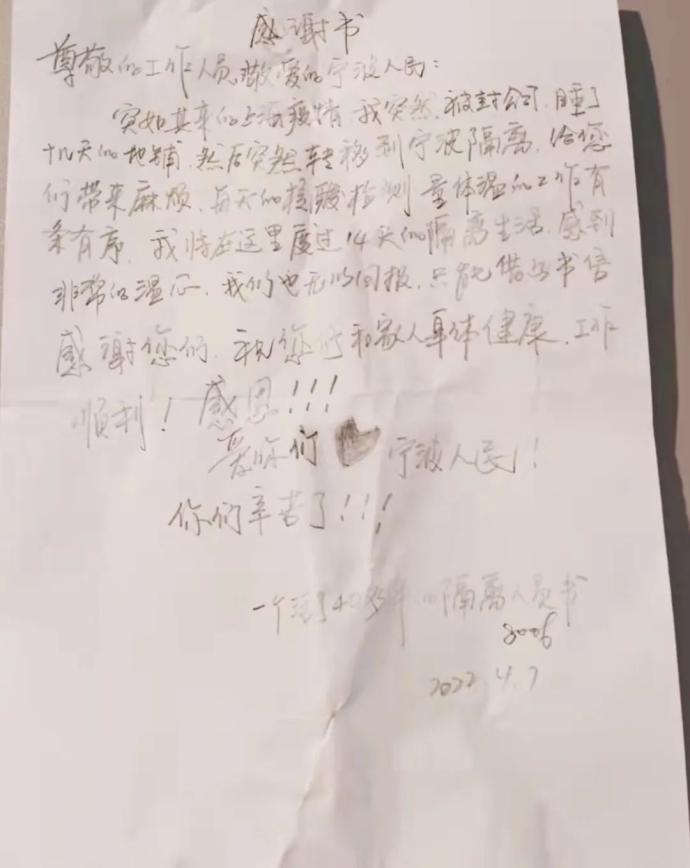 感谢书
尊敬的工作人员,敬爱的宁波人民:
突如其来的上海疫情,我突然被封公司,睡了
十几天的地铺,然后突然转移到宁波隔离,给您
们带来麻烦,每天的核酸检测,量体温的工作有
条有序,我将在这里度过14天的隔离生活,感到
非常的温心,我们也无以回报,只能借此书信
感谢您们,祝您们和家人身体健康,工作
顺利!感恩!!!
爱你们 宁波人民!
你们辛苦了!!!
一个活了40多年的隔离人员书
8006
2022.4.7